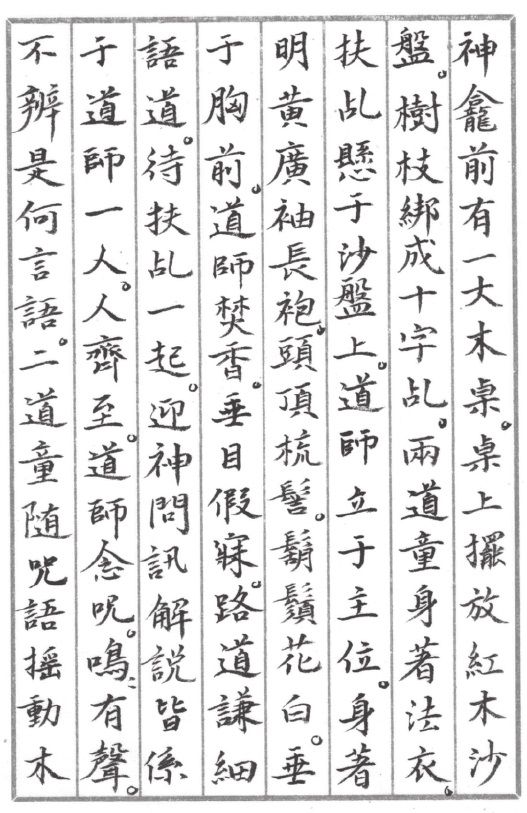 神龕前有一大木桌。桌上擺放紅木沙
盤。樹枝綁成十字乩。兩道童身著法衣。
扶乩懸于沙盤上。道師立于主位。身著
明黃廣袖長袍。頭頂梳髻。鬍鬚花白。垂
于胸前。道師焚香。垂目假寐。路道謙細
語道。待扶乩一起。迎神問訊解説皆係
于道師一人。人齊至。道師念呪。鳴鳴有聲。
不辨是何言語。二道童随呪語揺動木